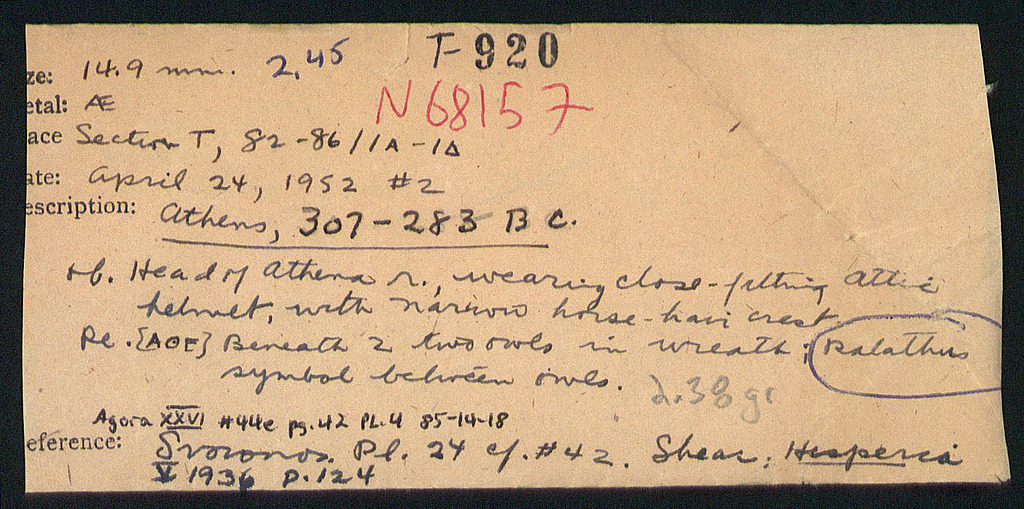 T-920
ze: 14.9 mm. 2,45
N68157
etal: Æ
ace Section T, 82-86/1A-1Δ
ate: April 24, 1952 #2
escription: Athens, 307-283 B C.
ob. Head of Athena r., wearing close-fitting Attic
helmet, with narrow horse-hair crest
Re. {AΘE} Beneath 2 two owls in wreath; Kalathus
symbol between owls. 2.38 gr
Agora XXVI #44e pg.42 PL.4 85-14-18
eference: Svoronos. Pl. 24 cf. #42. Shear, Hesperia
V 1936 p.124